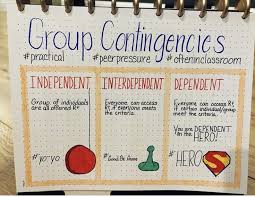 Group Contingencies
#practical #peerpressure #ofteninclassroom
INDEPENDENT
Group of individuals
are all offered R+
#yo-yo
INTERDEPENDENT
Everyone can access
R+, if everyone meets
the criteria.
DEPENDENT
Everyone can access R+,
if certain individual/group
meet the criteria.
You are DEPENDENT
on the HERO!
#HERO
S